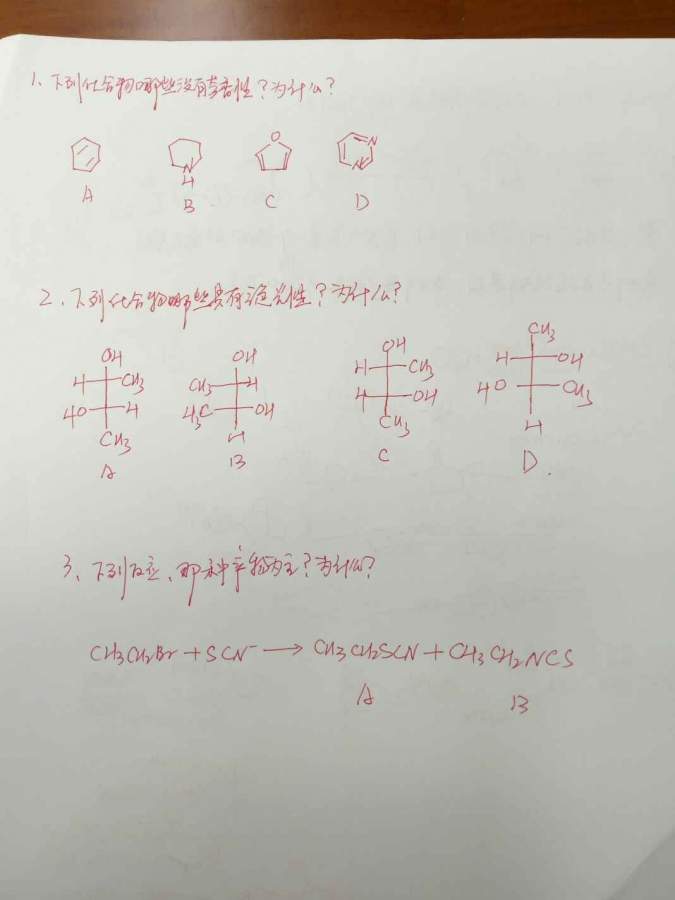 1、下列化合物哪些没有芳香性？为什么？
O N
N H N
A B C D
2、下列化合物哪些具有旋光性？为什么？
OH OH OH CH3
H CH3 CH3 H H CH3 H OH
HO H H3C OH H OH HO CH3
CH3 H CH3 H
A B C D.
3、下列反应、那种产物为主？为什么？
CH3CH2Br + SCN⁻ → CH3CH2SCN + CH3CH2NCS
A B